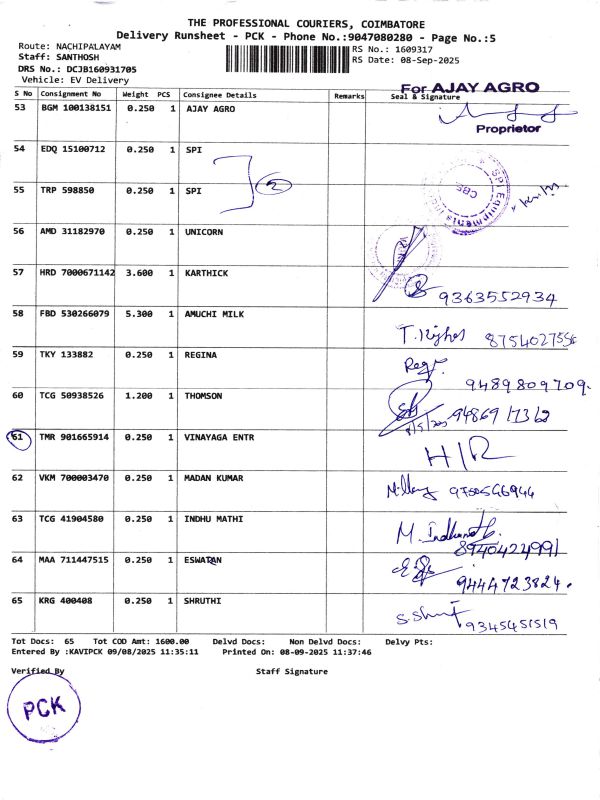 THE PROFESSIONAL COURIERS, COIMBATORE
Delivery Runsheet - PCK - Phone No.:9047080280 - Page No.:5
Route: NACHIPALAYAM
Staff: SANTHOSH
DRS No.: DCJB160931705
Vehicle: EV Delivery
RS No.: 1609317
RS Date: 08-Sep-2025
For AJAY AGRO
S No Consignment No Weight PCS Consignee Details Remarks Seal & Signature
53 BGM 100138151 0.250 1 AJAY AGRO
Proprietor
54 EDQ 15100712 0.250 1 SPI
2
SPI Equipments
CBE
55 TRP 598850 0.250 1 SPI
56 AMD 31182970 0.250 1 UNICORN
57 HRD 7000671142 3.600 1 KARTHICK
9363552934
58 FBD 530266079 5.300 1 AMUCHI MILK
8754027556
59 TKY 133882 0.250 1 REGINA
9489809709.
60 TCG 50938526 1.200 1 THOMSON
61 TMR 901665914 0.250 1 VINAYAGA ENTR
H/R
62 VKM 700003470 0.250 1 MADAN KUMAR
63 TCG 41904580 0.250 1 INDHU MATHI
8940424991
64 MAA 711447515 0.250 1 ESWATAN
9444723824.
65 KRG 400408 0.250 1 SHRUTHI
9345451519
Tot Docs: 65 Tot COD Amt: 1600.00 Delvd Docs: Non Delvd Docs: Delvy Pts:
Entered By :KAVIPCK 09/08/2025 11:35:11 Printed On: 08-09-2025 11:37:46
Verified By Staff Signature
PCK